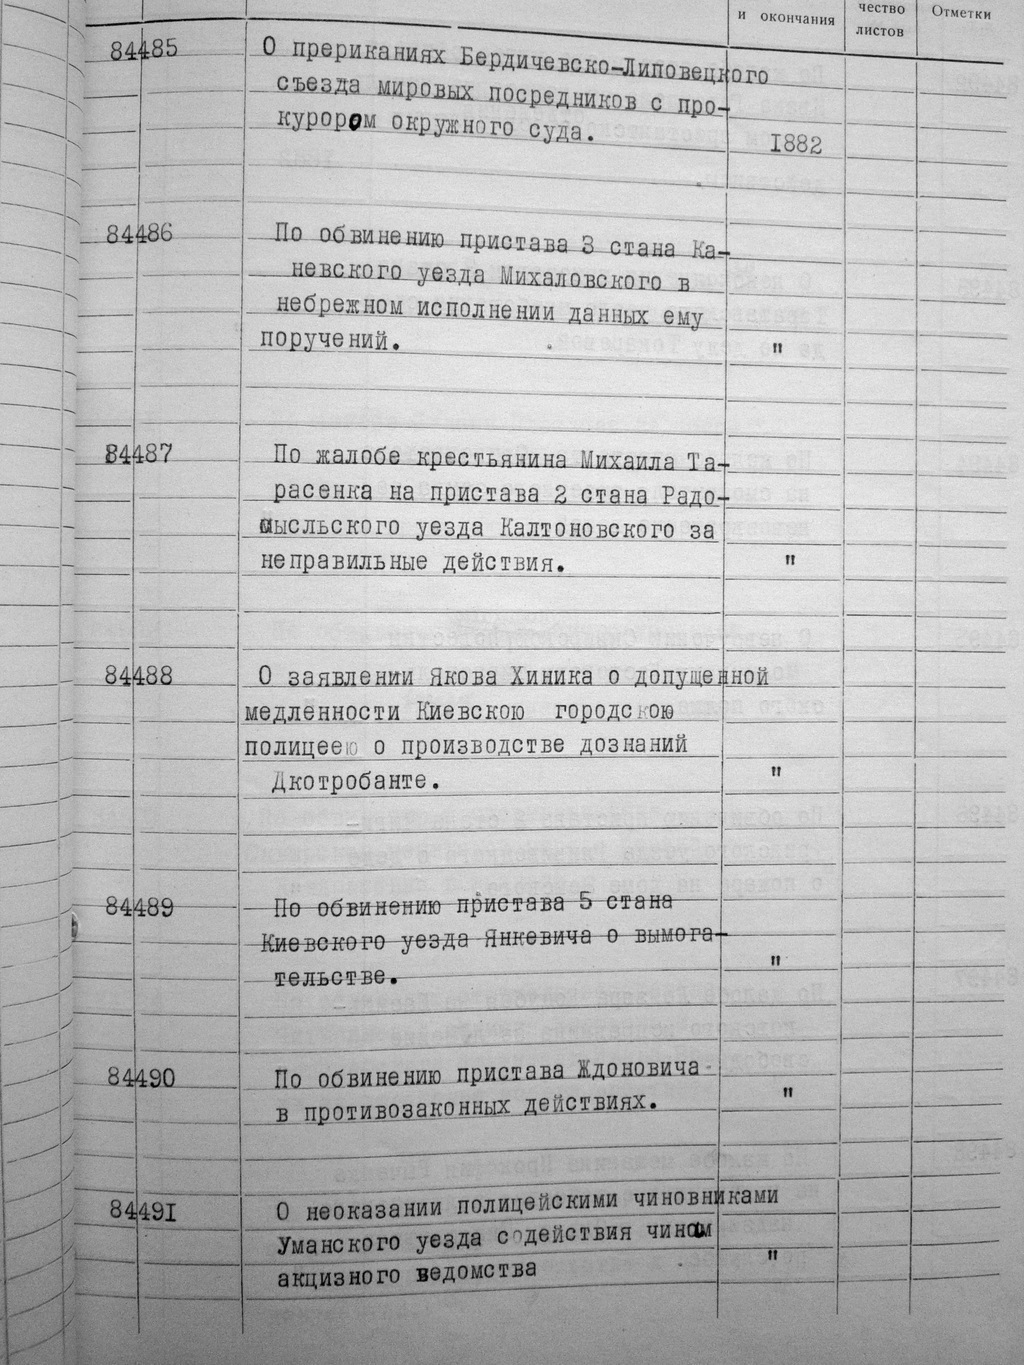 и окончания
чество
листов
Отметки
84485
О прериканиях Бердичевско-Липовецкого
съезда мировых посредников с про-
курором окружного суда.
1882
84486
По обвинению пристава 3 стана Ка-
невского уезда Михаловского в
небрежном исполнении данных ему
поручений.
"
84487
По жалобе крестьянина Михаила Та-
расенка на пристава 2 стана Радо-
мысльского уезда Калтоновского за
неправильные действия.
"
84488
О заявлении Якова Хиника о допущенной
медленности Киевскою городскою
полицеею о производстве дознаний
Дкотробанте.
"
84489
По обвинению пристава 5 стана
Киевского уезда Янкевича о вымога-
тельстве.
"
84490
По обвинению пристава Ждоновича
в противозаконных действиях.
"
84491
О неоказании полицейскими чиновниками
Уманского уезда содействия чинам
акцизного ведомства
"